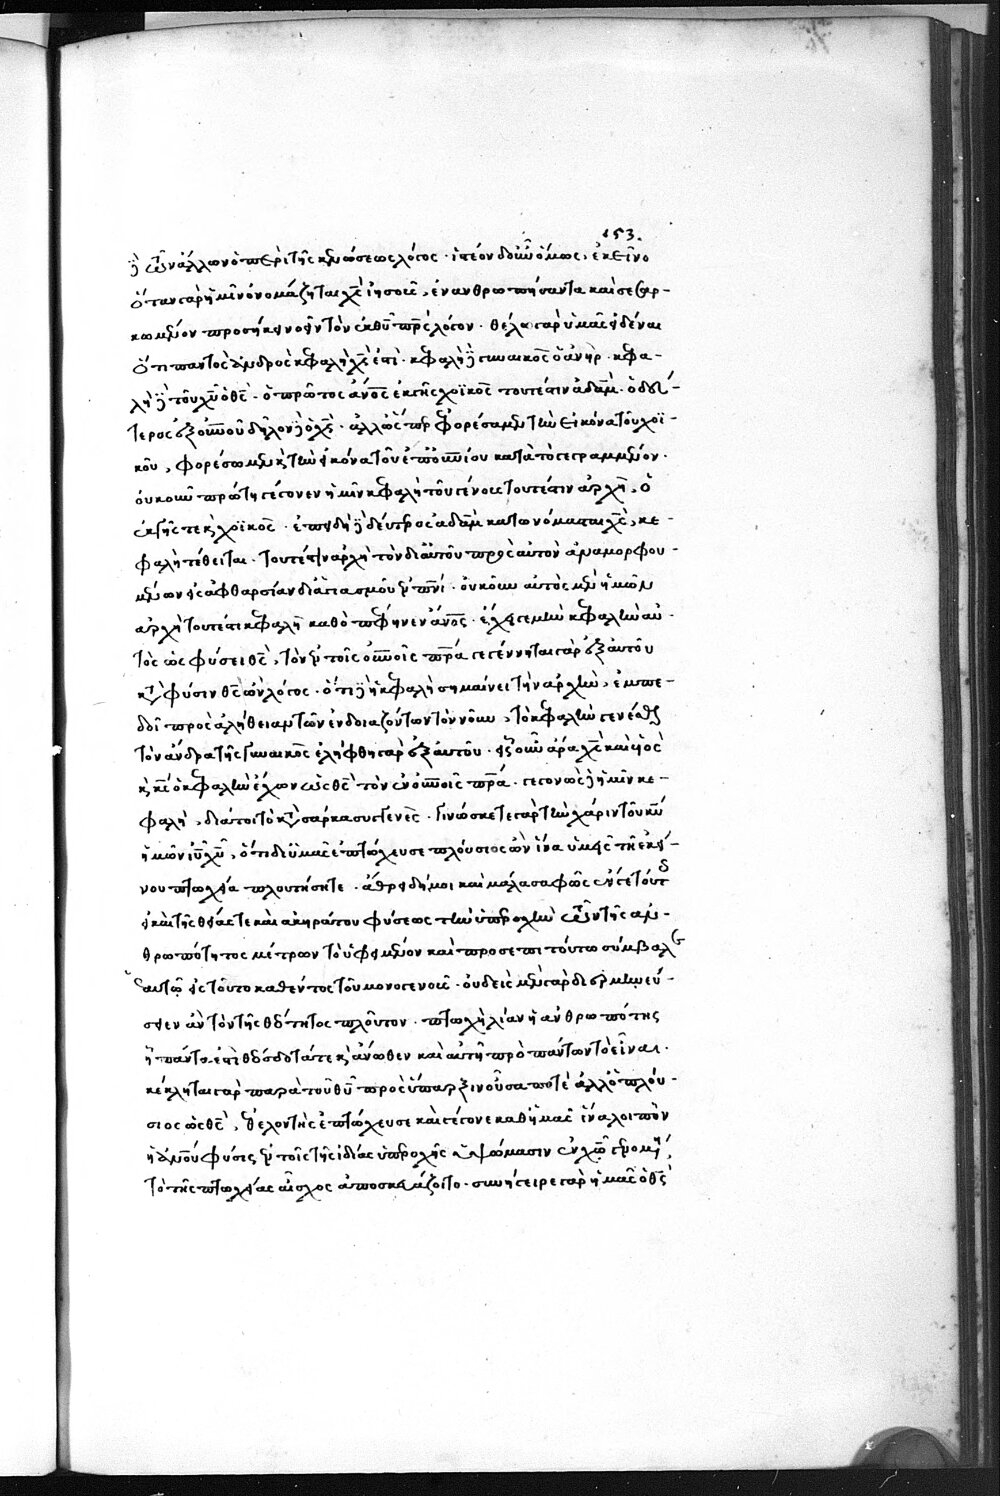 153.
ὑπὲρ τῶν ἄλλων ὁ περὶ τῆς κενώσεως λόγος · ἰστέον δ' οὖν ὅμως, ἐκεῖνο
ὅταν γὰρ ἡμῖν ὀνομάζηται χς ἰησοῦς, ἐνανθρωπήσαντα καὶ σεσαρ-
κωμένον προσήκει νοεῖν τὸν ἐκ θυ πρς λόγον · θέλω γὰρ ὑμᾶς εἰδέναι
ὅτι παντὸς ἀνδρὸς κεφαλὴ χς ἐστὶ · κεφαλὴ δὲ γυναικὸς ὁ ἀνήρ · κεφα-
λὴ δὲ τοῦ χυ ὁ θς · ὁ πρῶτος ἄνος ἐκ γῆς χοϊκὸς τουτέστιν ἀδάμ · ὁ δεύ-
τερος ἐξ οὐνοῦ δῆλον δὲ ὁ χς · ἀλλ' ὥσπερ ἐφορέσαμεν τὴν εἰκόνα τοῦ χοϊ-
κοῦ, φορέσωμεν καὶ τὴν εἰκόνα τοῦ ἐπουνίου κατὰ τὸ γεγραμμένον ·
οὐκοῦν πρώτη γέγονεν ἡμῖν κεφαλὴ τοῦ γένους τουτέστιν ἀρχὴ, ὁ
ἐκ γῆς τε καὶ χοϊκὸς · ἐπειδὴ δὲ δεύτερος ἀδὰμ κατωνόμασται χς, κε-
φαλὴ τέθειται · τουτέστιν ἀρχὴ τῶν δι' αὐτοῦ πρὸς αὐτὸν ἀναμορφου-
μένων εἰς ἀφθαρσίαν δι' ἁγιασμοῦ ἐν πνι · οὐκοῦν αὐτὸς μὲν ἡμῶν
ἀρχὴ τουτέστι κεφαλὴ καθὸ πέφηνεν ἄνος · ἔχει γε μὴν κεφαλὴν αὐ-
τὸς ὡς φύσει θς, τὸν ἐν τοῖς οὐνοῖς πρα γεγέννηται γὰρ ἐξ αὐτοῦ
κατὰ φύσιν θς ὢν λόγος · ὅτι δὲ ἡ κεφαλὴ σημαίνει τὴν ἀρχὴν, ἐμπε-
δοῖ πρὸς ἀλήθειαν τῶν ἐνδοιαζόντων τὸν νοῦν, τὸ κεφαλὴν γενέσθαι
τὸν ἄνδρα τῆς γυναικὸς ἐλήφθη γὰρ ἐξ αὐτοῦ · εἷς οὖν ἄρα χς καὶ υἱὸς
καὶ κς ὁ κεφαλὴν ἔχων ὡς θς τὸν ἐν οὐνοῖς πρα · γεγονὼς δὲ ἡμῖν κε-
φαλὴ, διά τοι τὸ κατὰ σάρκα συγγενὲς · γινώσκετε γὰρ τὴν χάριν τοῦ κυ
ἡμῶν ιυ χυ, ὅτι δι' ὑμᾶς ἐπτώχευσε πλούσιος ὢν ἵνα ὑμεῖς τῇ ἐκεί-
νου πτωχεία πλουτήσητε · ἄθρει δή μοι καὶ μάλα σαφῶς ἐν γε τούτοις
καὶ τῆς θείας τε καὶ ἀκηράτου φύσεως τὴν ὑπεροχὴν τῶν τῆς ἀν-
θρωπότητος μέτρων τὸ ὑφειμένον καὶ προσέτι τούτω συμβαλ
αὐτῶ εἰς τοῦτο καθέντος τοῦ μονογενοῦς · οὐδεὶς μὲν γὰρ διερμηνεύ-
σειεν ἂν τὸν τῆς θεότητος πλοῦτον · πτωχὴ λίαν ἡ ἀνθρωπότης
ἢ πάντα ἐστὶ θεόσδοτά τε καὶ ἄνωθεν καὶ αὐτὴ πρὸ πάντων τὸ εἶναι ·
κέκληται γὰρ παρὰ τοῦ θυ πρὸς ὕπαρξιν οὖσα ποτὲ ἀλλ' ὁ πλού-
σιος ὡς θς, θέλοντὴς ἐπτώχευσε καὶ γέγονε καθ' ἡμᾶς ἵνα λοιπὸν
ἡ ἀνου φύσις ἐν τοῖς τῆς ἰδίας ὑπεροχῆς ὑψώμασιν ἐν χω
τὸ τῆς πτωχείας αἶσχος ἀποσκευάζοιτο · συνήγειρε γὰρ ἡμᾶς ὁ θς